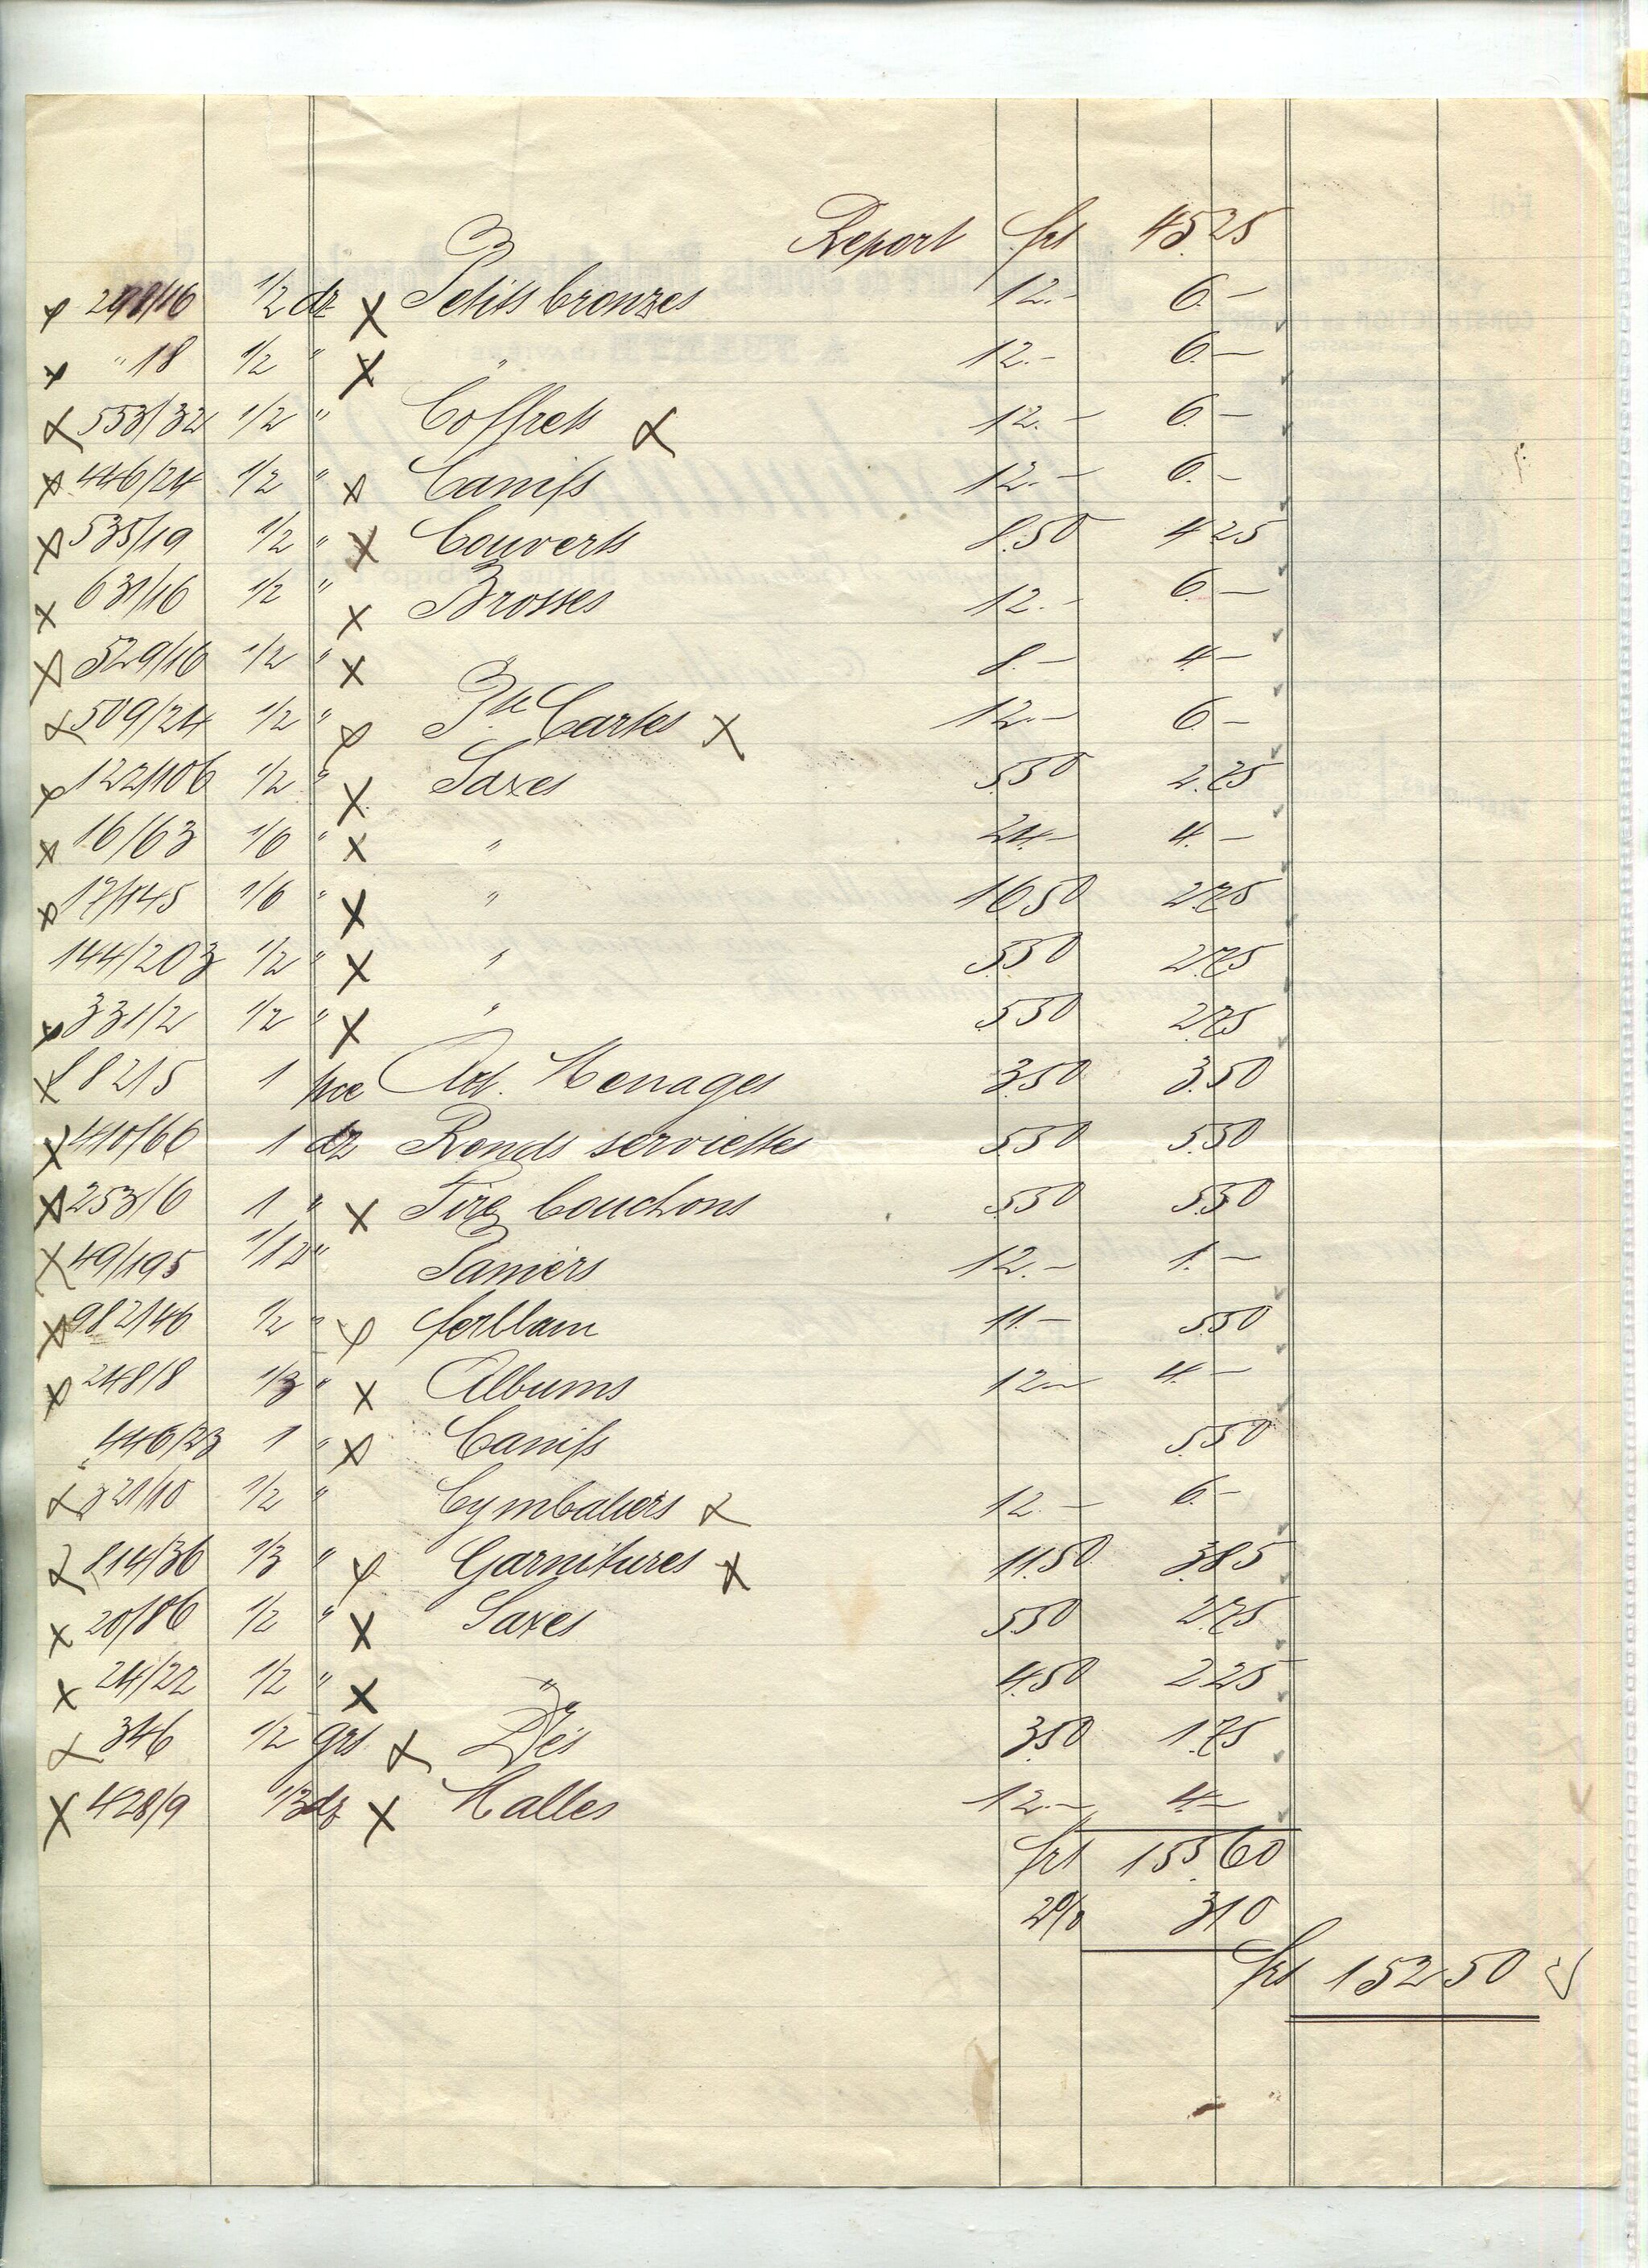 Report frs 45 25
298/16 1/2 dz Petits bronzes 12.- 6.-
" 18 1/2 " " 12.- 6.-
553/32 1/2 " Coffrets 12.- 6.-
446/24 1/2 " Canifs 12.- 6.-
535/19 1/2 " Couverts 8.50 4 25
631/16 1/2 " Brosses 12.- 6.-
529/16 1/2 " " 8.- 4.-
509/24 1/2 " Pte Cartes 12.- 6.-
122/106 1/2 " Saxes 5.50 2.75
16/63 1/6 " " 24.- 4.-
17/145 1/6 " " 16 50 2.75
144/203 1/2 " " 5.50 2.75
331/2 1/2 " " 5.50 2.75
821/5 1 pce Art. Menages 3.50 3.50
410/66 1 dz Ronds serviettes 5.50 5.50
253/6 1 " Tire bouchons 5.50 5.50
49/195 1/12 " Paniers 12.- 1.-
982/46 1/2 " ferblam 11.- 5.50
248/8 1/3 " Albums 12.- 4.-
446/23 1 " Canifs 5.50
321/10 1/2 " Cymbaliers 12.- 6.-
814/36 1/3 " Garnitures 11.50 3.85
20/86 1/2 " Saxes 5.50 2.75
24/22 1/2 " " 4.50 2 25
346 1/2 grs Dés 3.50 1.75
428/9 1/3 dz Malles 12.- 4.-
frs 155.60
2% 3 10
frs 152 50